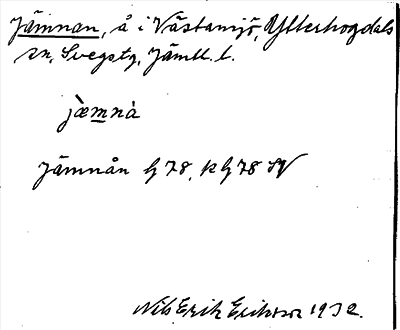 Jämnan, å i Västansjö, Ytterhogdals
sn, Svegs tg, Jämtl. l.
jæ̀mnà
Jämnån G 78, k G 78 SV
Nils Erik Eriksson 1932.